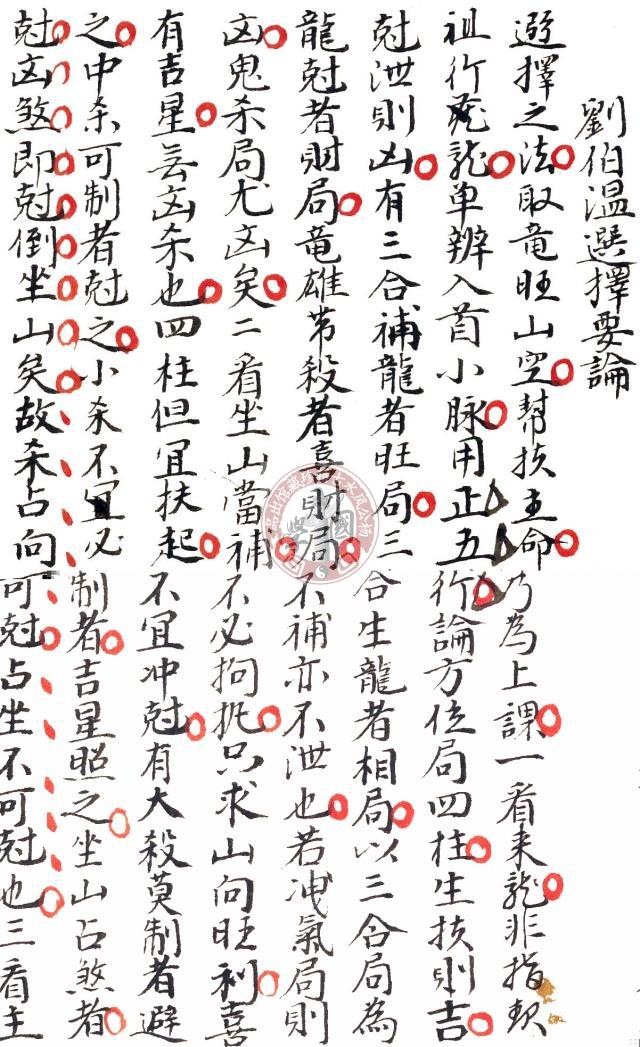 劉伯温選擇要論
擇之法取竜旺山空幫扶主命乃為上課一看来龍非指
祖行龍单辨入首小脉用正五行論方位局四柱生扶則吉
尅泄則凶有三合補龍者旺局三合生龍者相局以三合局為
龍尅者財局竜雄带殺者喜財局不補亦不泄也若洩氣局則
凶鬼杀局尤凶矣二看坐山當補不必拘只求山向旺利喜
有吉星无凶杀也四柱但宜扶起不宜冲尅有大殺莫制者避
之中杀可制者尅之小杀不宜必制者吉星照之坐山占煞者
尅凶煞即尅倒坐山矣故杀占向可尅占坐不可尅也三看主
國學